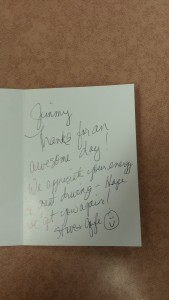 Jimmy
Thanks for an
awesome day!
We appreciate your energy
& neat driving - Hope
we get you again!